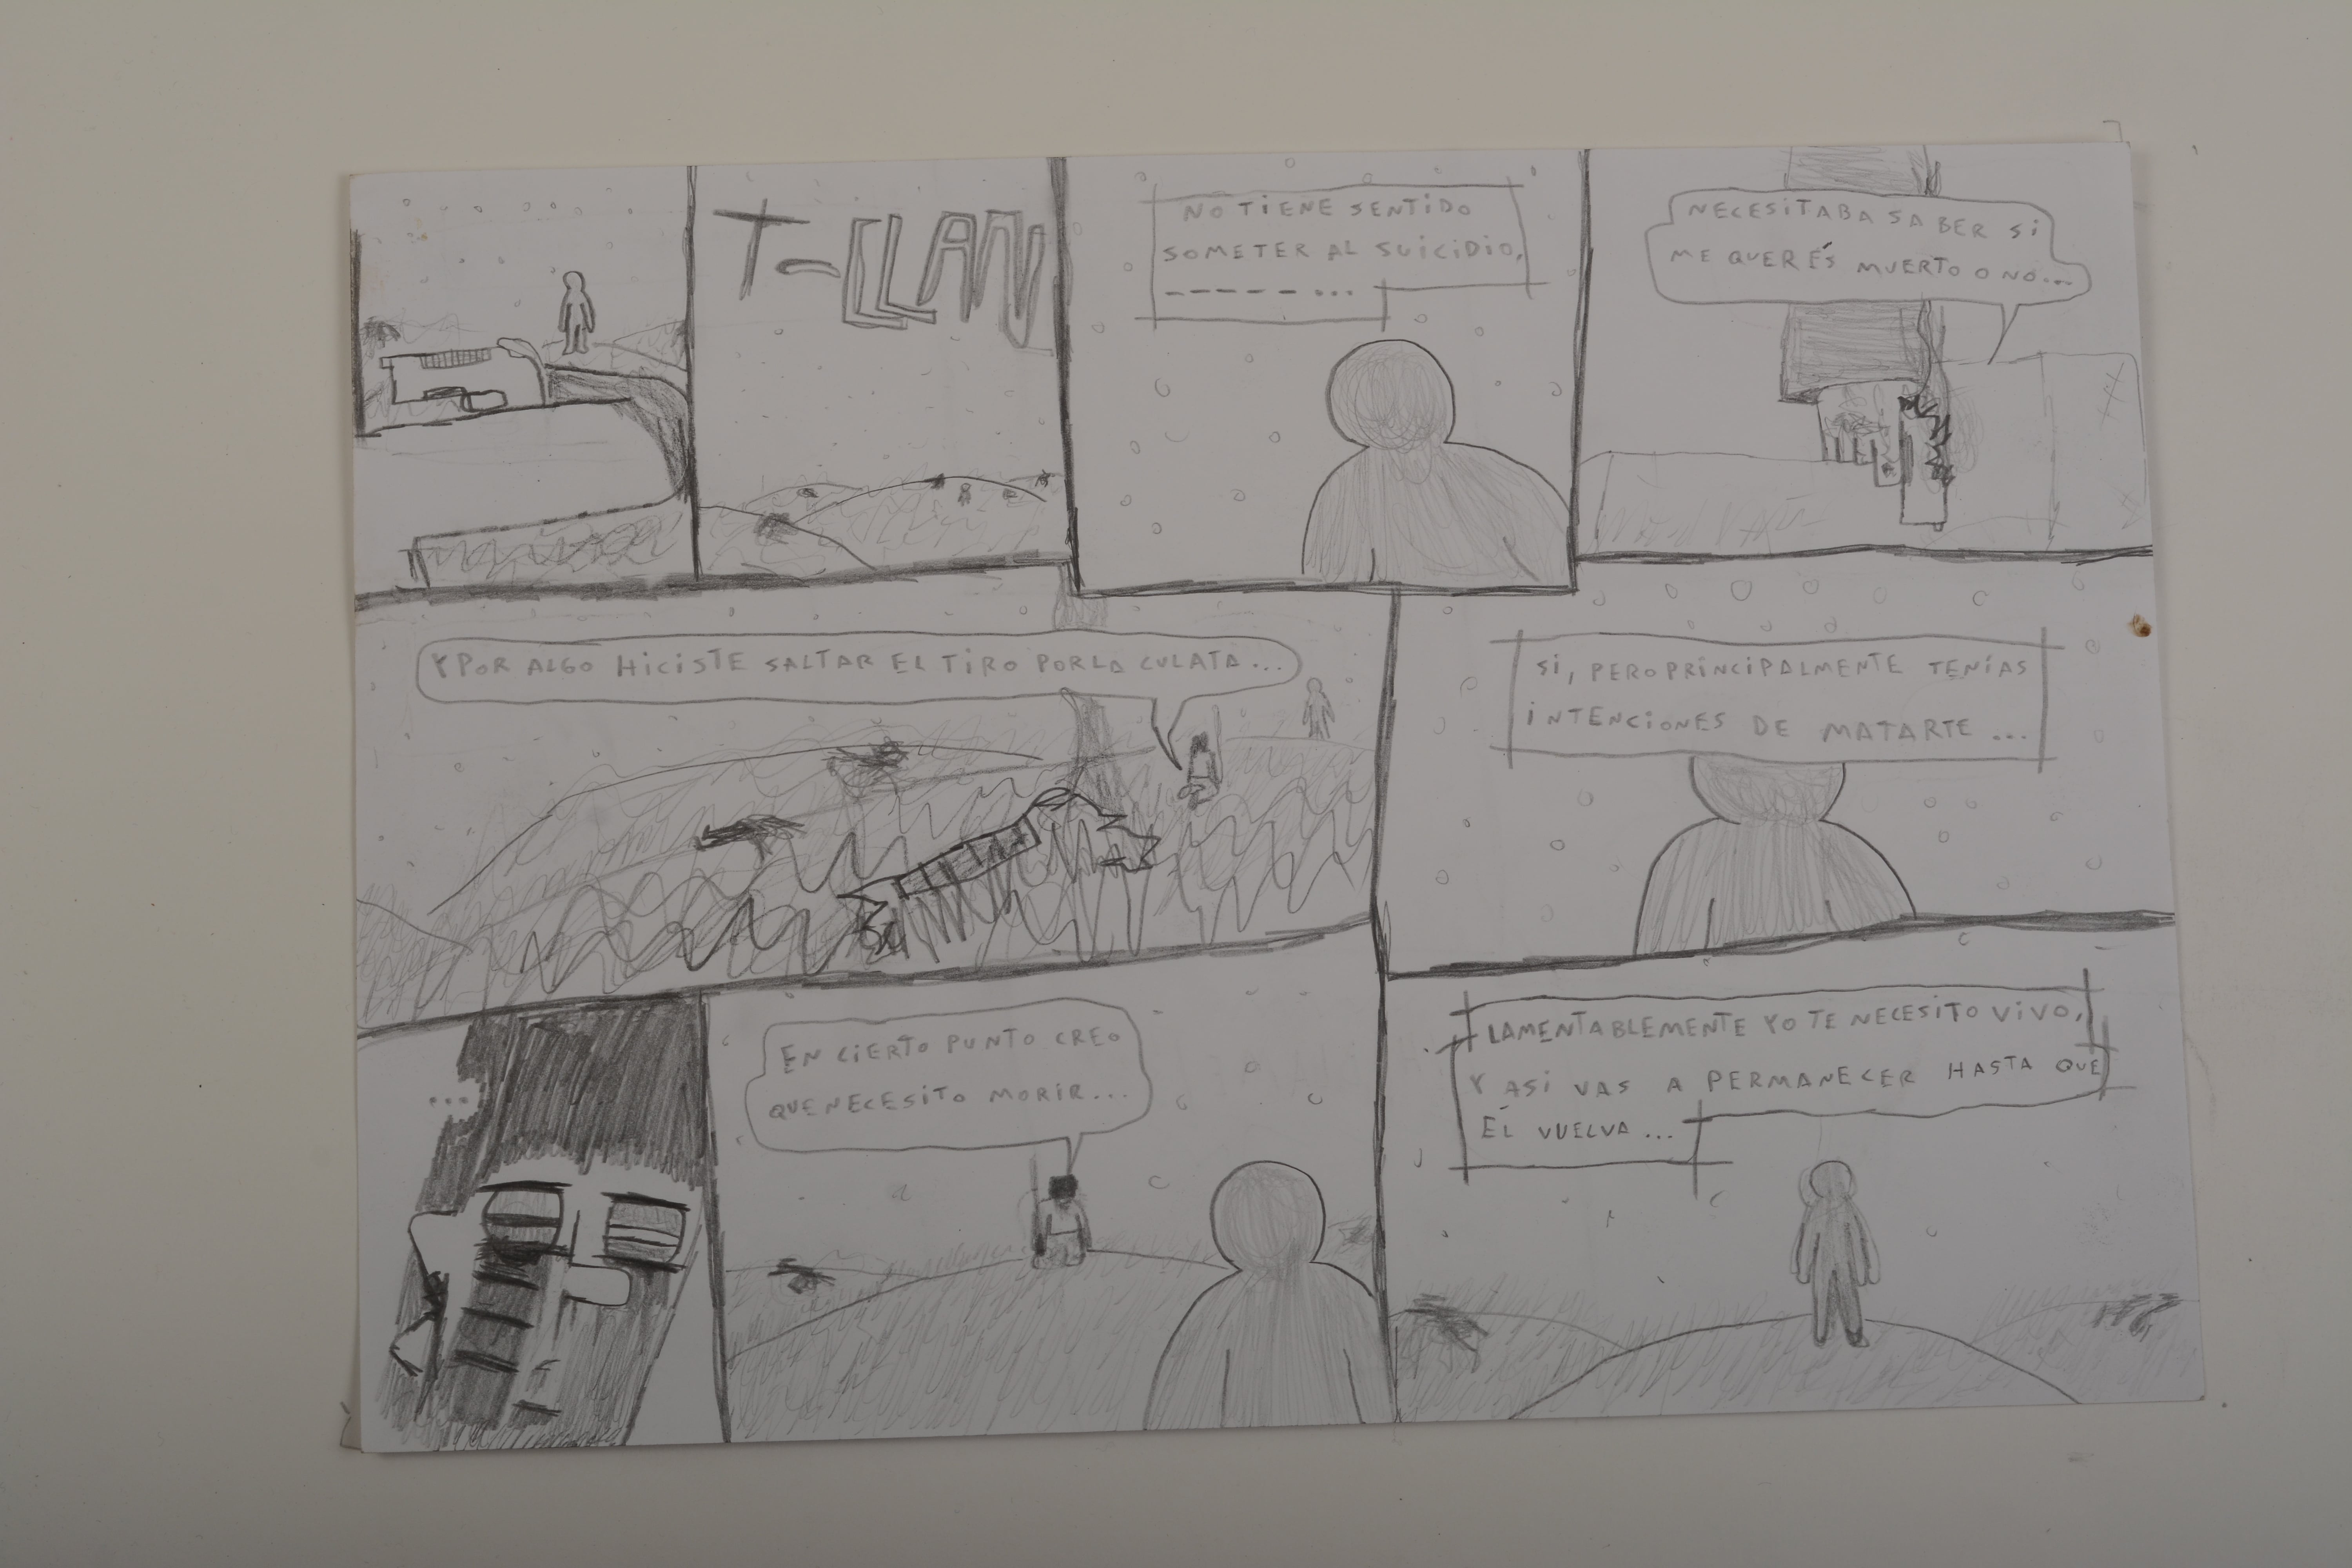 T-CLLAN
NO TIENE SENTIDO
SOMETER AL SUICIDIO,
------...
NECESITABA SABER SI
ME QUERÉS MUERTO O NO...
Y POR ALGO HICISTE SALTAR EL TIRO POR LA CULATA...
SI, PERO PRINCIPALMENTE TENÍAS
INTENCIONES DE MATARTE ...
...
EN CIERTO PUNTO CREO
QUE NECESITO MORIR...
LAMENTABLEMENTE YO TE NECESITO VIVO,
Y ASI VAS A PERMANECER HASTA QUE
ÉL VUELVA ...